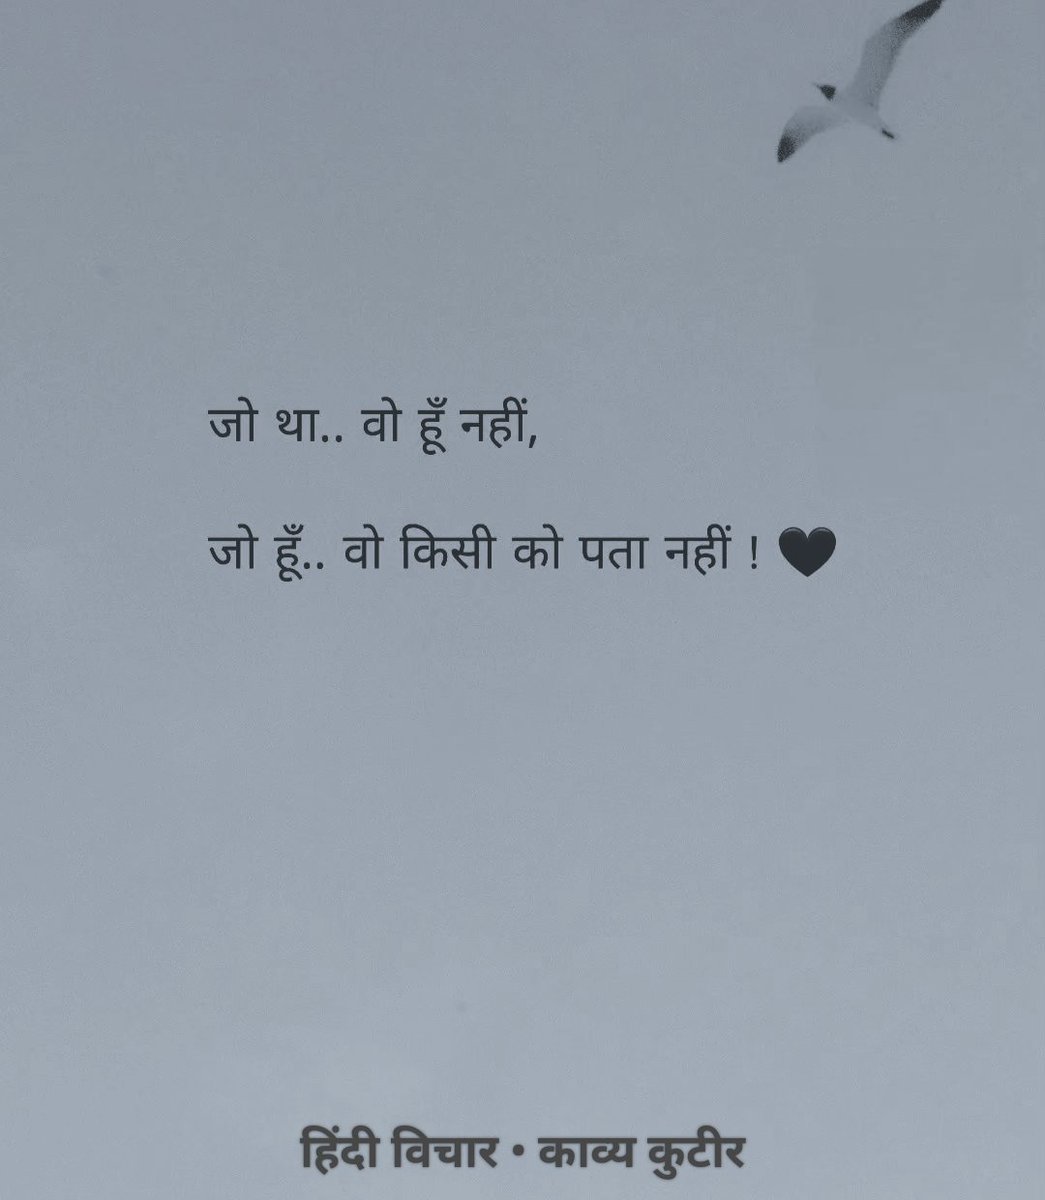 जो था.. वो हूँ नहीं,
जो हूँ.. वो किसी को पता नहीं ! 🖤
हिंदी विचार • काव्य कुटीर